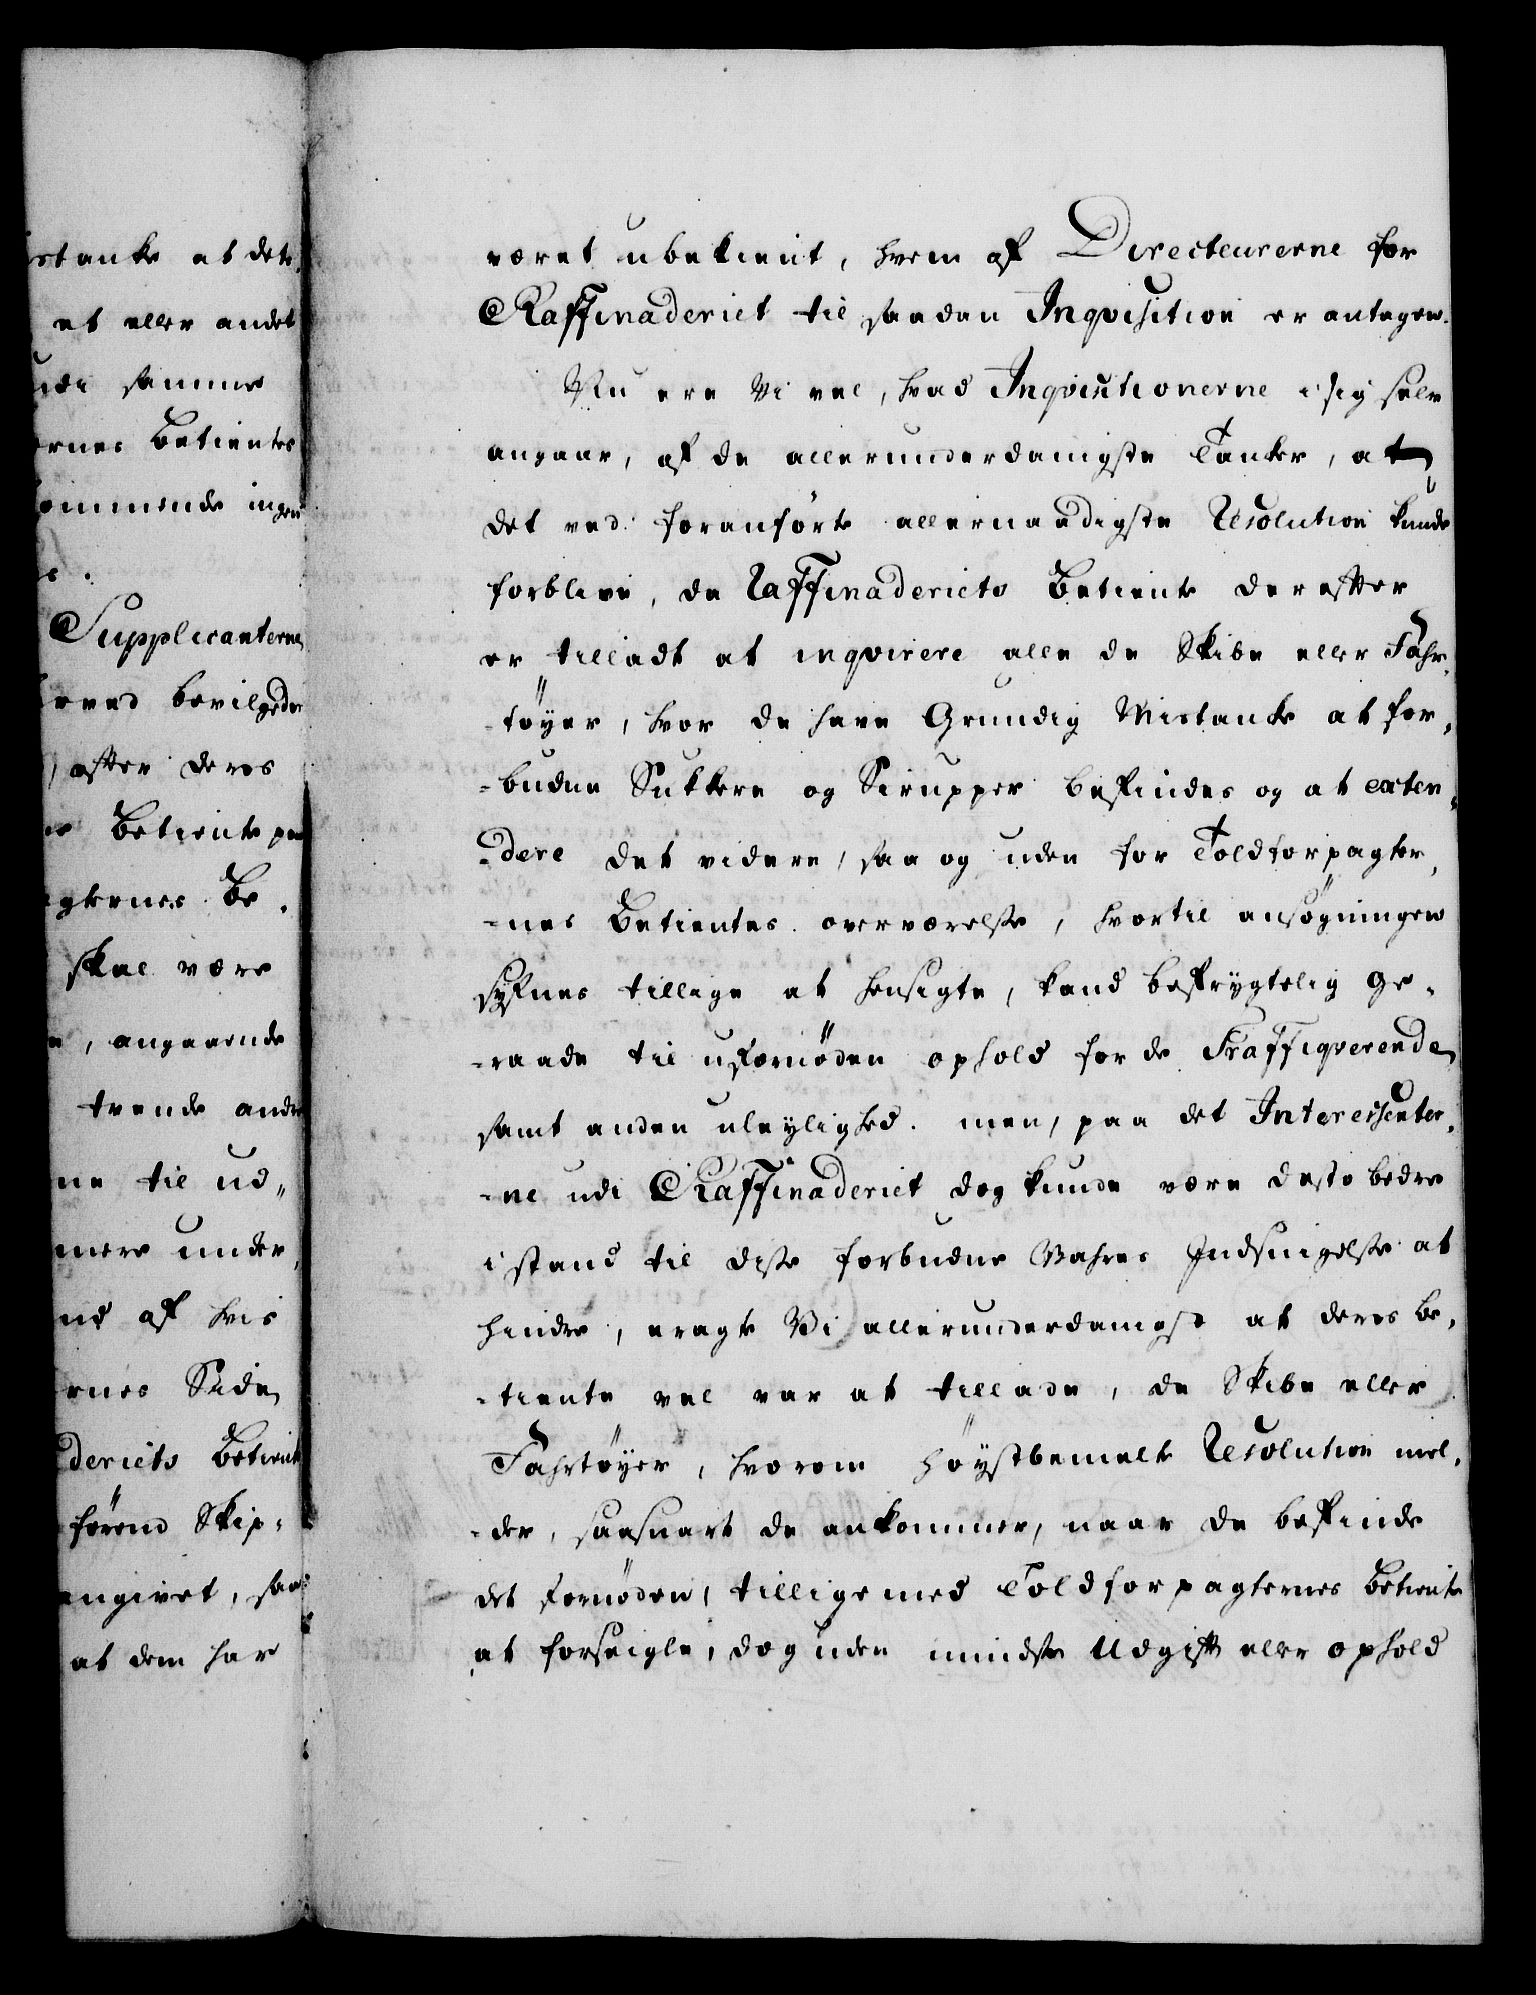 istanke at dets
et eller andet
udi samme
ernes Betientes
kommende ingen
Supplicanterne
herved bevilgede
efter deres
Betiente paa
gternes Be-
skal være
, angaaende
trende andre
ne til ud-
mere under,
nd af hvis
ernes Side
deriets Betient
førend Skip-
angivet, saa
at dem har
været ubekient, hvem af Directeurerne for
Raffinaderiet til saadan Inqvisition er antagen.
Nu ere Vi vel, hvad Inqvisitionerne i sig selv
angaar, af de allerunderdanigste Tanker, at
det ved foranførte allernaadigste Resolution kunde
forblive, da Raffinaderiets Betiente derefter
er tilladt at inqvirere alle de Skibe eller Fahr-
-tøyer, hvor de have Grundig Mistanke at for-
-budne Sukkere og Sirupper befindes og at exten-
-dere det videre, saa og uden for Toldforpagter-
-nes Betientes overværelse, hvortil ansøgningen
syfnes tillige at hensigte, kand befrygtelig ge-
-raade til ufornøden ophold for de Traffiqverende
samt anden uleylighed. men, paa det Interessenter-
-ne udi Raffinaderiet dog kunde være desto bedre
i stand til disse forbudne Wahres Indsnigelse at
hindre, eragte Vi allerunderdanigst at deres be-
-tiente vel var at tillade, de Skibe eller
Fahrtøyer, hvorom høystbemelte Resolution mel-
-der, saasnart de ankommer, naar de befinde
det fornøden, tillige med Toldforpagternes Betiente
at forseigle, dog uden mindste Udgift eller ophold